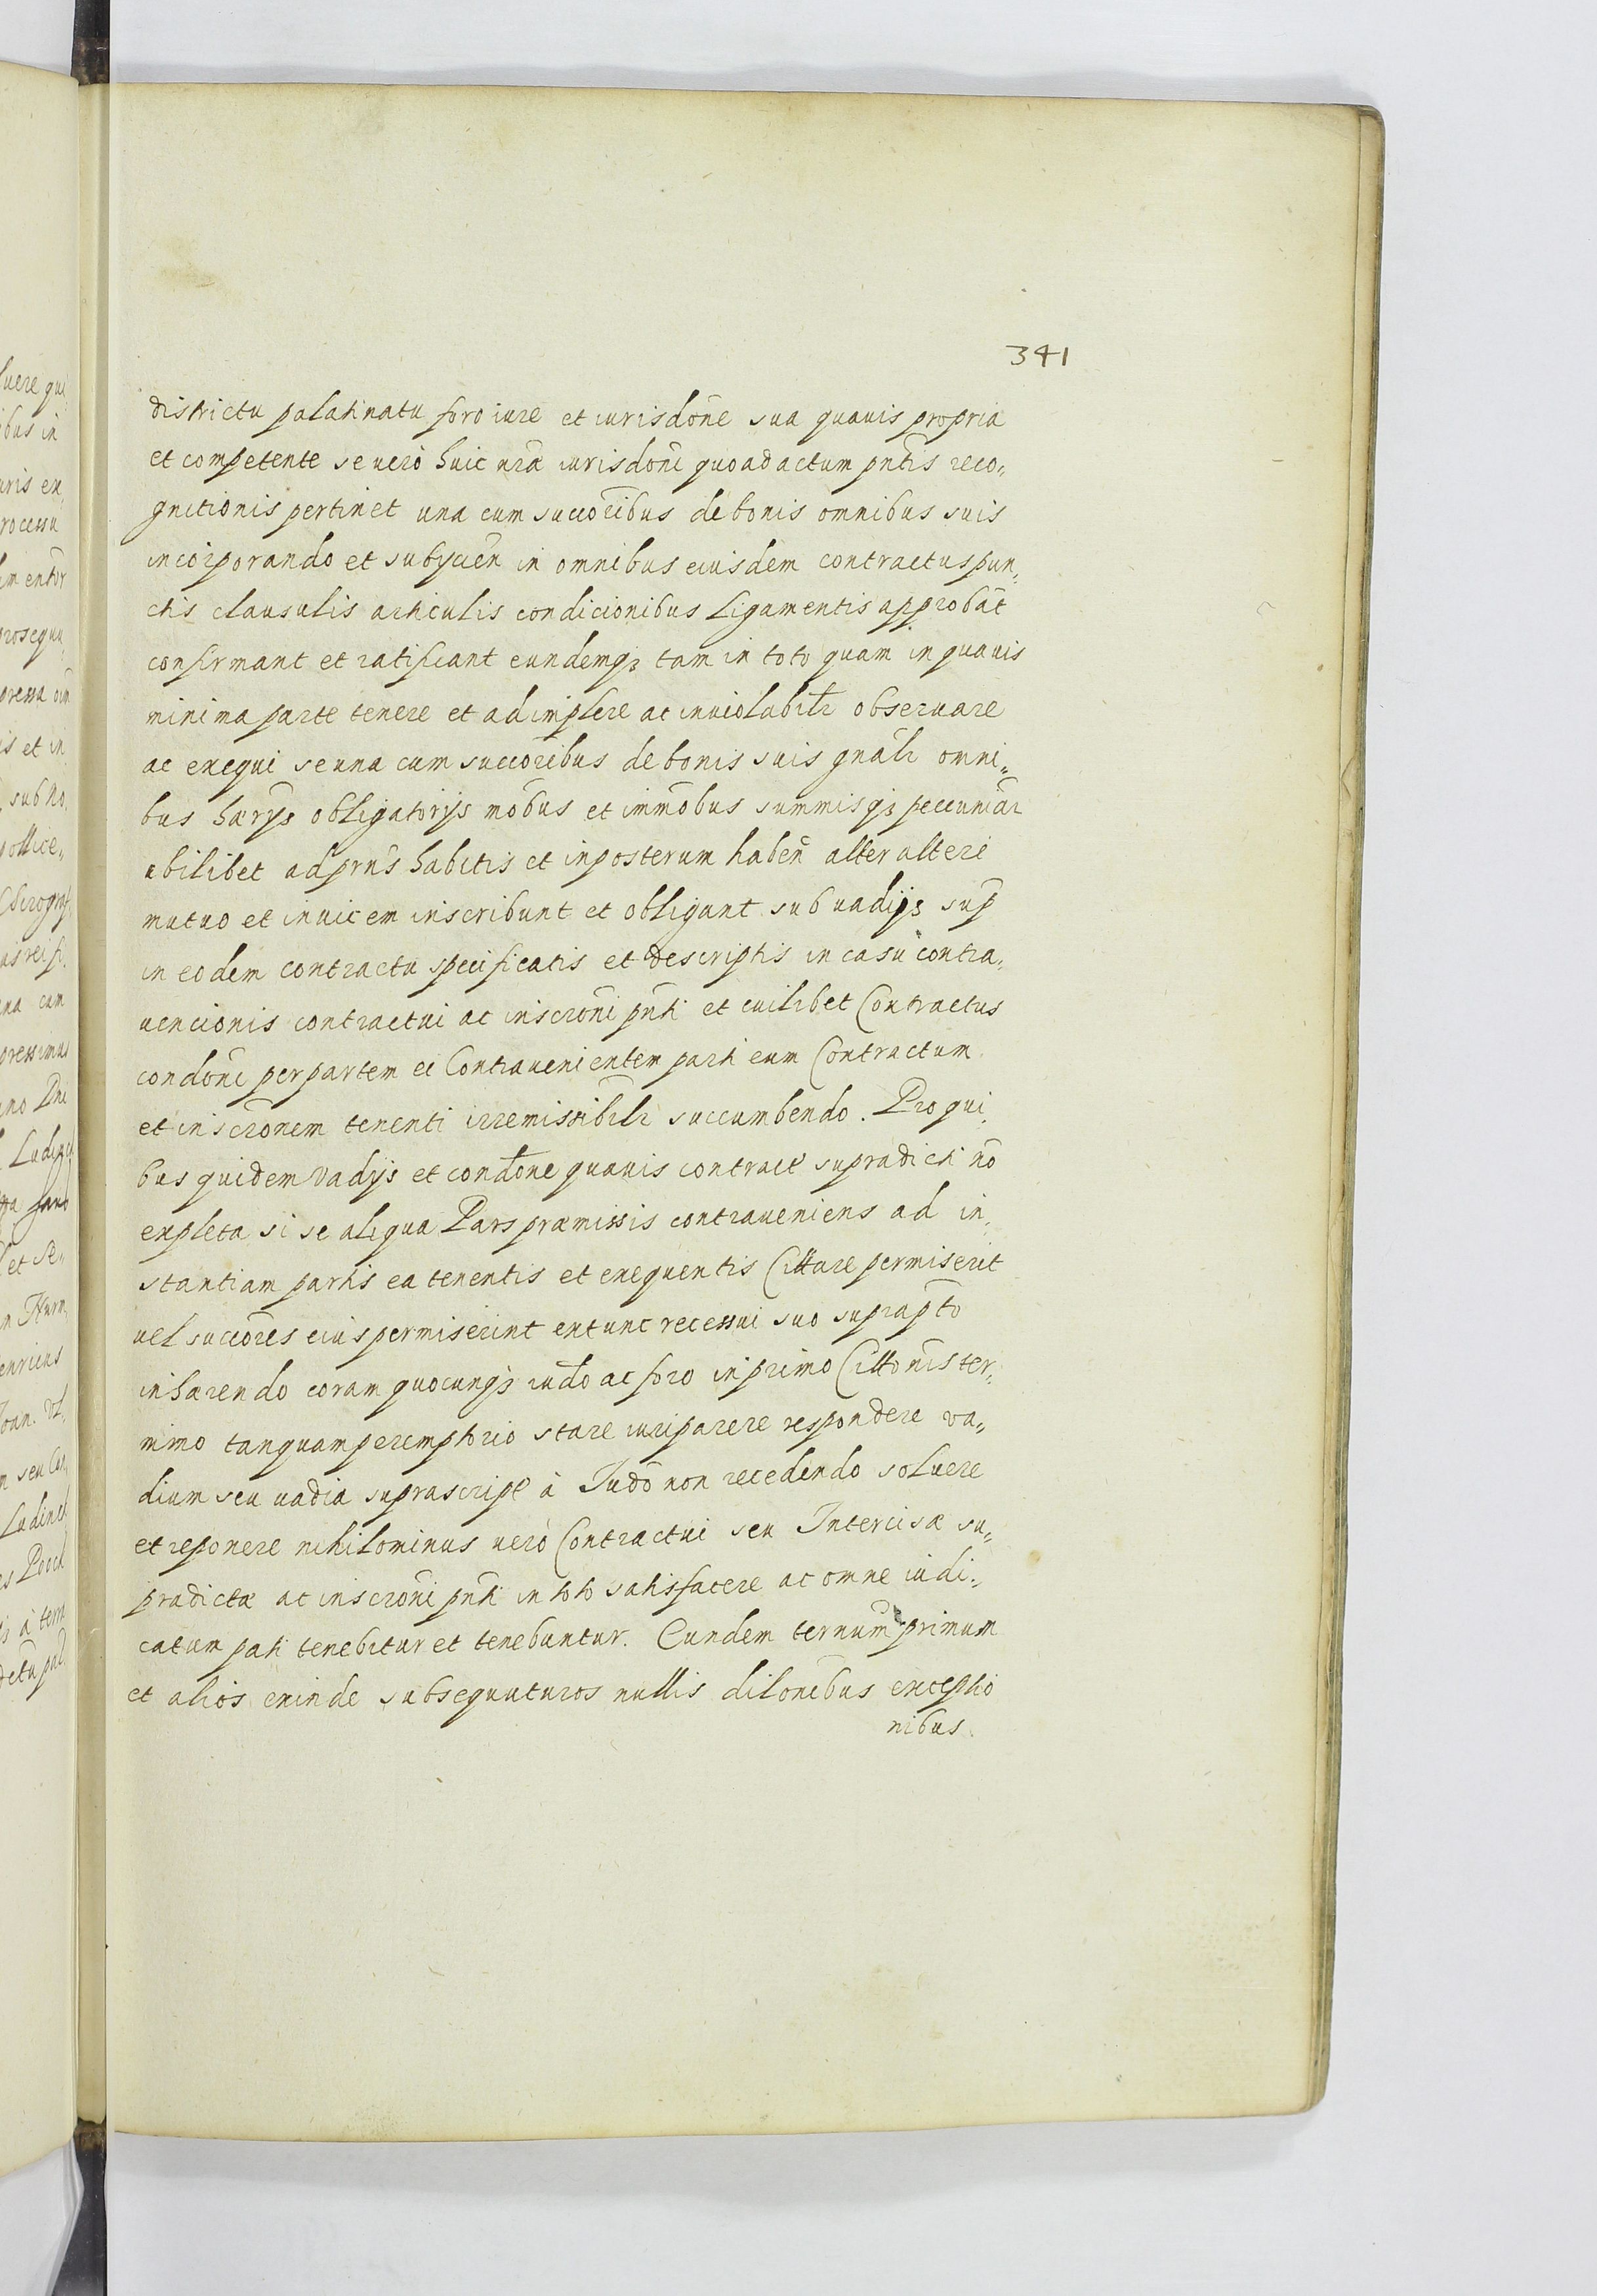 341
districtu palatinatu foro iure et iurisdõne sua quauis propria
et competente se verò huic nrã iurisdõni quoad actum pntĩs reco„
gnitionis pertinet una cum succorĩbus de bonis omnibus suis
incorporando et subÿcieñ in omnibus eiusdem contractus pun„
ctis clausulis articulis condicionibus ligamentis approbãt
confirmant et ratificant eundemqз tam in toto quam in quauis
minima parte tenere et adimplere ac inuiolabilr̃ obseruare
ac exequi se una cum succorĩbus de bonis suis gnãlr omni„
bus hærÿs obligatorÿs mobũs et immobũs summisqз peccuniãr
ubilibet ad prns̃ habitis et inposterum habeñ alter alteri
mutuo et inuicem inscribunt et obligant sub uadÿs sup̃
in eodem contractu specificatis et descriptis in casu contra„
uencionis contractui ac inscrõni pnti̇̃ et cuilibet Contractus
condõni per partem ei Contrauenientem parti eum Contractum
et inscrõnem tenenti irremissibilr̃ succumbendo. Pro qui„
bus quidem vadÿs et condõne quauis contract supradicti nõ
expleta si se aliqua Pars præmissis contraueniens ad in„
stantiam partis ea tenentis et exequentis Cittare permiserit
uel succorẽs eius permiserint extunc recessui suo suprapt̃o
inhærendo coram quocunqз iudõ ac foro in primo Cittõnis ter„
mino tanquam peremptorio stare iuri parere respondere va„
dium seu uadia suprascript à Judõ non recedendo soluere
et reponere nihilominus verò Contractui seu Intercisæ su„
pradictæ ac inscrõni pnti̇̃ in toto satisfacere ac omne iudi„
catum pati tenebitur et tenebuntur. Eundem ternũm primum
et alios exinde subsequuturos nullis dilonĩbus exceptio
nibus